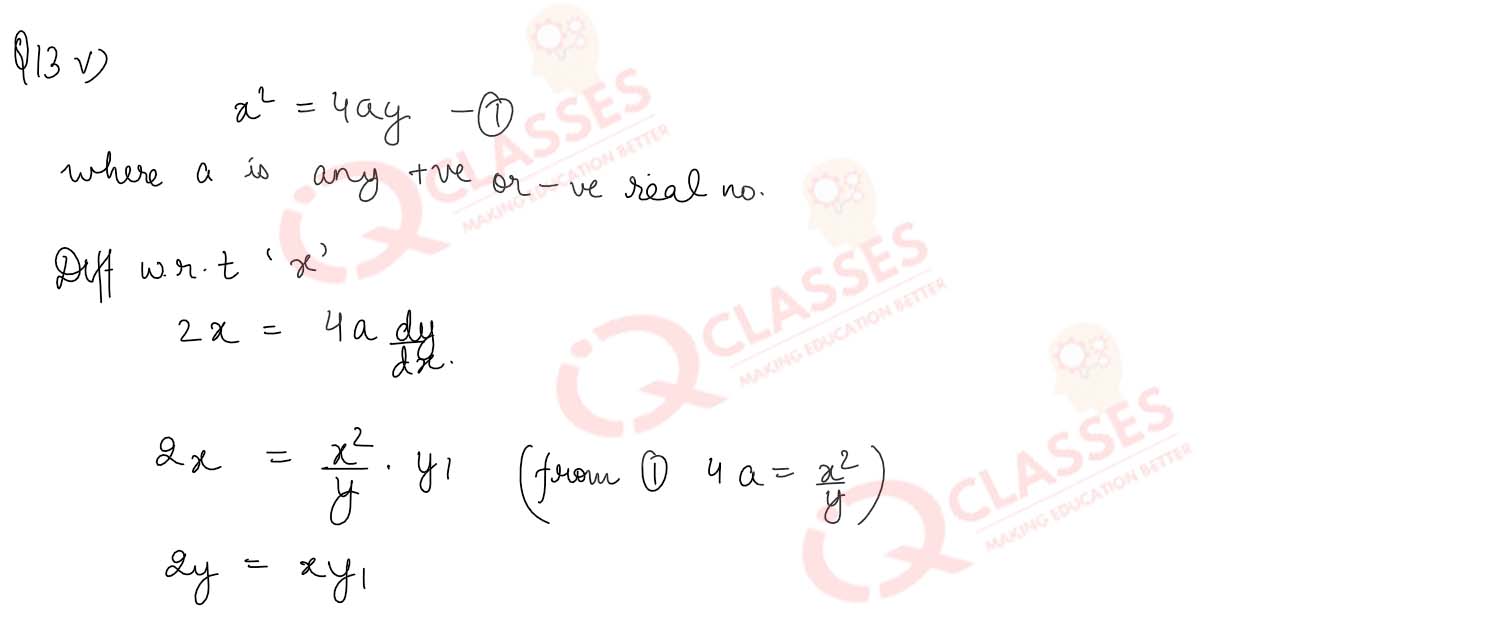 Q13 v)
x² = 4ay - ①
where a is any +ve or -ve real no.
Diff w.r.t 'x'
2x = 4a dy/dx.
2x = x²/y . y₁ (from ① 4a = x²/y)
2y = xy₁
IQ CLASSES
MAKING EDUCATION BETTER
IQ CLASSES
MAKING EDUCATION BETTER
IQ CLASSES
MAKING EDUCATION BETTER